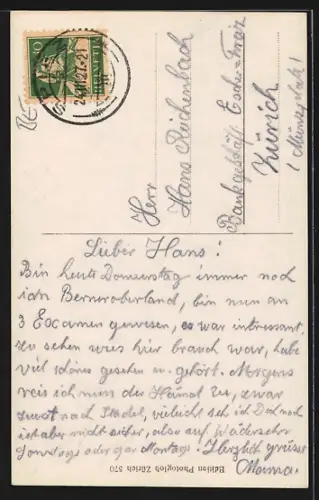 10
HELVETIA
24.III.27.-21
Herr
Hans Reichenbach
Bankgeschäft Escher
Zürich
(Münzplatz)
Lieber Hans!
Bin heute Donnerstag immer noch
im Berneroberland, bin nun an
3 Examen gewesen, es war interessant,
zu sehen wies hier brauch war, habe
viel schönes gesehen u. gehört. Morgens
reis ich nun der Heimat zu, zwar
zuerst nach Stadel, vieleicht seh ich Dich noch
ist aber nicht sicher, also auf Wiedersehn
Sonntags oder gar Montags. Herzlich grüsst
Mama.
Edition Photoglob Zürich 570